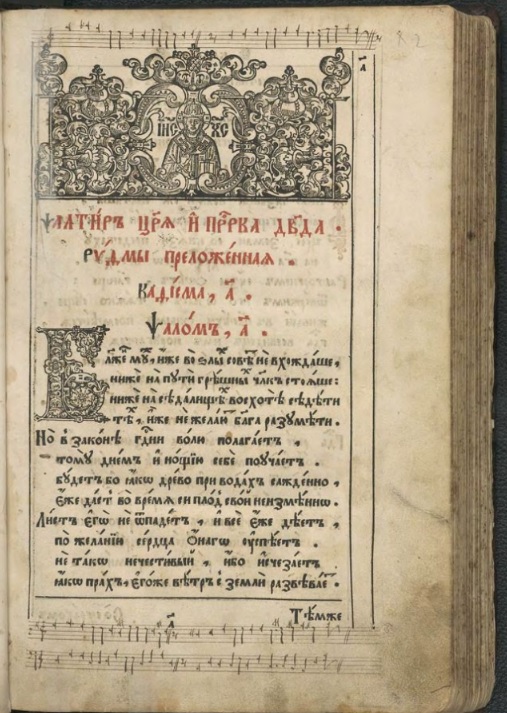 І҃ИС Х҃С
а҃
ѰАЛТИ́РЬ ЦР҃Я И҆ ПРР҇КА ДВ҃ДА .
РУ́ДМЫ ПРЕЛОЖЕ́ННАЯ .
КАДІ́СМА , А҃ .
ѰАЛО́МЪ , А҃ .
Бл҃же́ мꙋ́ , иже во злы́ совѣ́ не вхождаше ,
нижѐ на пути грѣ́шны члк҃ъ стоѧше :
ниже на сѣда́лищѣ восхотѣ̀ сѣдѣ́ти
тѣ́ , и҆́же не жела́ю бл҃га разумѣ́ти .
Но̀ в̾ зако́нѣ гдⷭ҇ни во́ли полага́етъ ,
тому̀ дне́мъ и҆ но́щїю себѐ поуча́етъ .
бу́детъ бо ꙗ҆́кѡ дре́во при вода́хъ сажде́нно ,
є҆́же дае́тъ во вре́мѧ си пло́д свой неизмѣ́ннѡ .
Ли́стъ є҆гѡ̀ не ѿпаде́тъ , и҆ всѐ є҆́же дѣ́етъ ,
по жела́нїи се́рдца ѻ҆́нагѡ оу҆спѣ́етъ .
не та́кѡ нечести́вый , и҆́бо и҆счеза́етъ
ꙗ҆́кѡ пра́хъ , є҆го́же вѣ́тръ с̾ землѝ развѣва́е .
а҃
Тѣ́мже